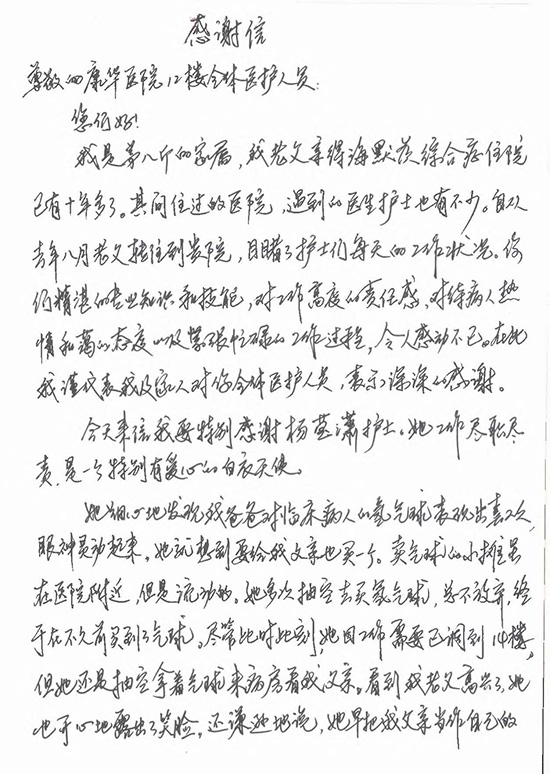 感谢信
尊敬的康华医院12楼全体医护人员:
您们好!
我是第八斤的家属,我老父亲得海默茨综合症住院
已有十年多了。其间住过的医院,遇到的医生护士也有不少。自从
去年八月老父转住到贵院,目睹了护士们每天的工作状况。你
们精湛的专业知识和技能,对工作高度的责任感,对待病人热
情和蔼的态度以及紧张忙碌的工作过程,令人感动不已。在此
我谨代表我及家人对你全体医护人员,表示深深的感谢。
今天来信我要特别感谢杨 潇护士。她工作尽职尽
责,是一个特别有爱心的白衣天使。
她细心地发现我爸爸对临床病人的氢气球表现出喜欢,
眼神灵动起来。她就想到要给我父亲也买一个。卖气球的小摊虽
在医院附近,但是流动的。她多次抽空去买氢气球,总不放弃,终
于在不久前买到了气球。尽管此时此刻,她因工作需要已调到14楼,
但她还是抽空拿着气球来病房看我父亲。看到我老父高兴了,她
也开心地露出了笑脸,还谦逊地说,她早把我父亲当作自己的